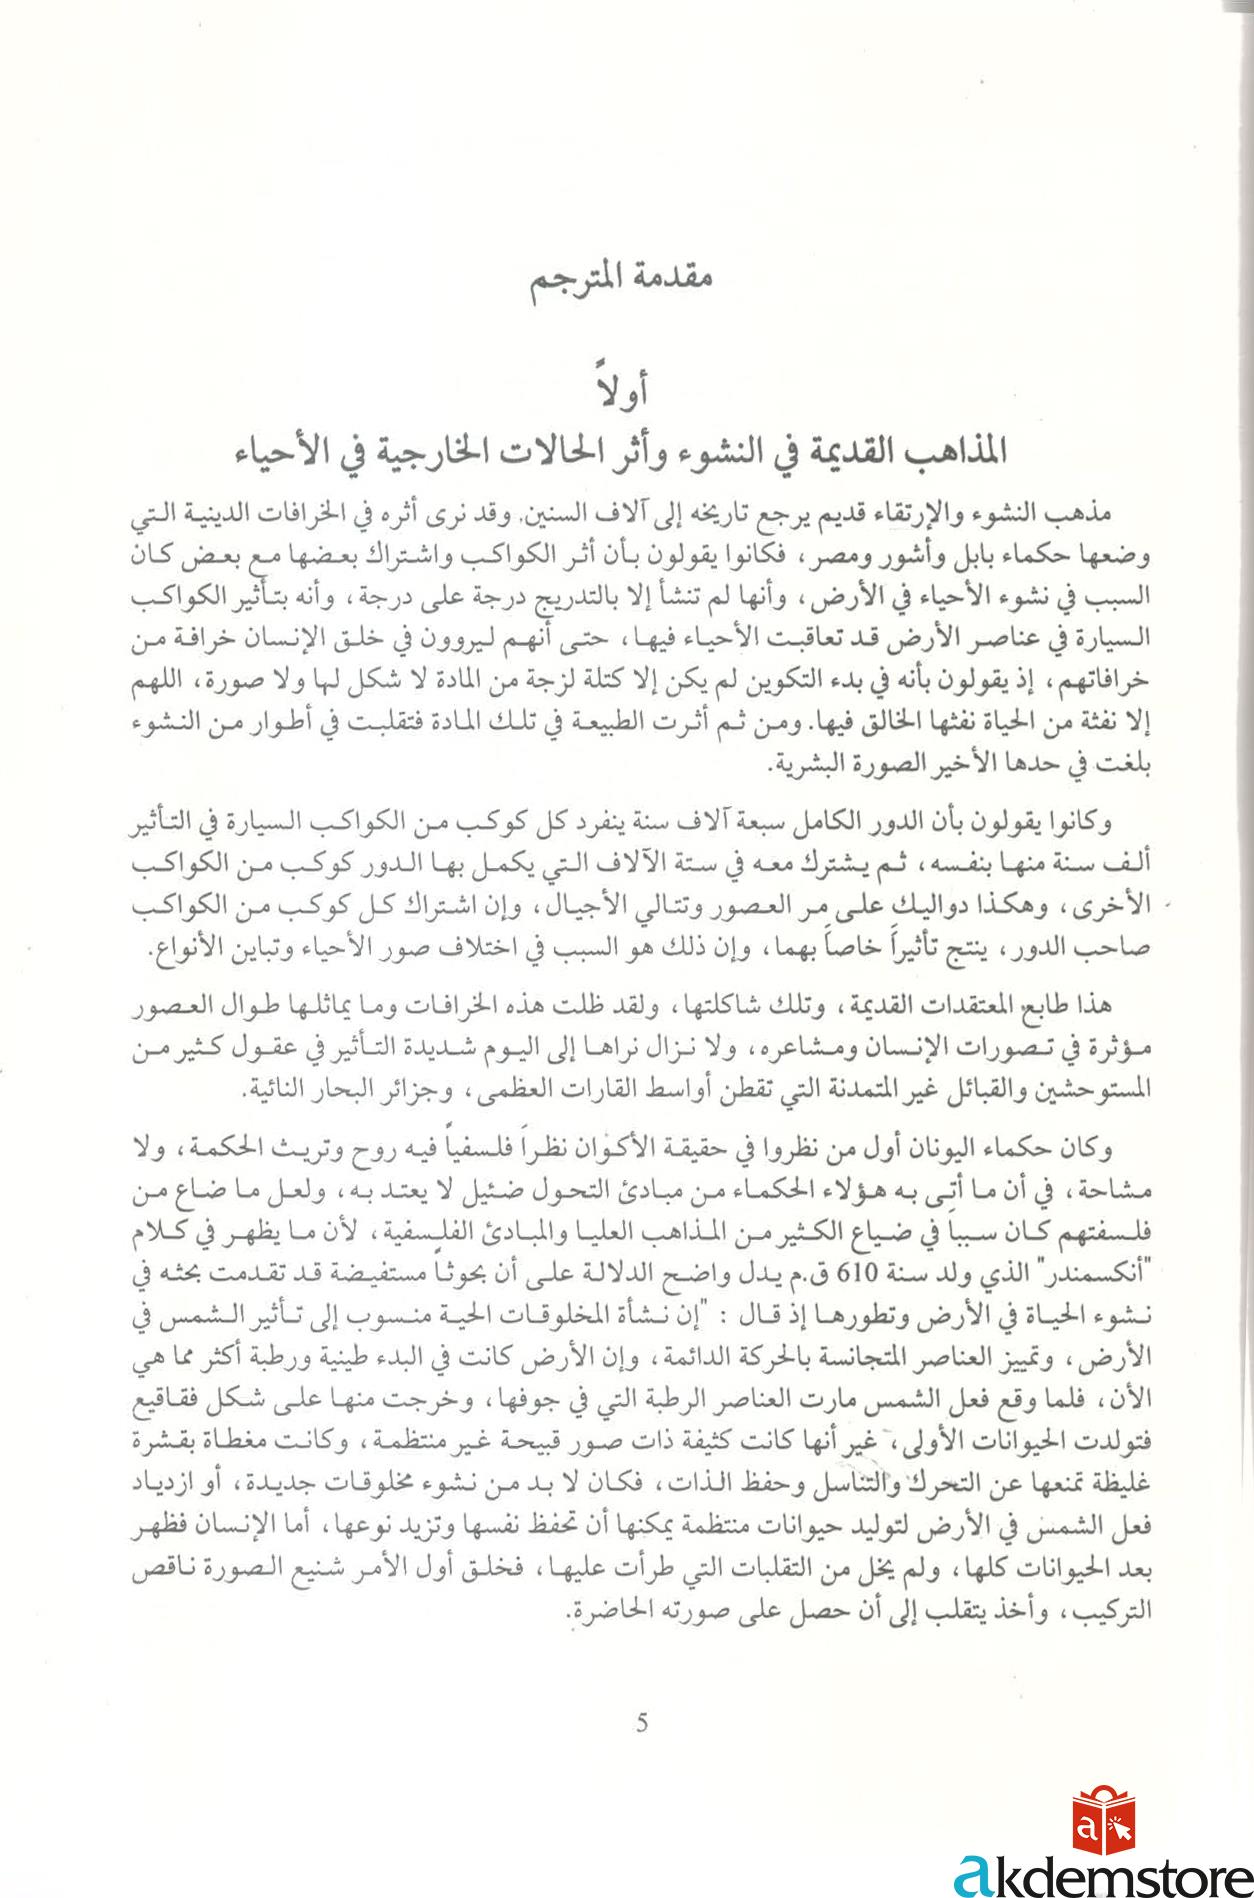 مقدمة المترجم
أولاً
المذاهب القديمة في النشوء وأثر الحالات الخارجية في الأحياء
مذهب النشوء والإرتقاء قديم يرجع تاريخه إلى آلاف السنين. وقد نرى أثره في الخرافات الدينية التي
وضعها حكماء بابل وأشور ومصر، فكانوا يقولون بأن أثر الكواكب واشتراك بعضها مع بعض كان
السبب في نشوء الأحياء في الأرض، وأنها لم تنشأ إلا بالتدريج درجة على درجة، وأنه بتأثير الكواكب
السيارة في عناصر الأرض قد تعاقبت الأحياء فيها، حتى أنهم ليروون في خلق الإنسان خرافة من
خرافاتهم، إذ يقولون بأنه في بدء التكوين لم يكن إلا كتلة لزجة من المادة لا شكل لها ولا صورة، اللهم
إلا نفثة من الحياة نفثها الخالق فيها. ومن ثم أثرت الطبيعة في تلك المادة فتقلبت في أطوار من النشوء
بلغت في حدها الأخير الصورة البشرية.
وكانوا يقولون بأن الدور الكامل سبعة آلاف سنة ينفرد كل كوكب من الكواكب السيارة في التأثير
ألف سنة منها بنفسه، ثم يشترك معه في ستة الآلاف التي يكمل بها الدور كوكب من الكواكب
الأخرى، وهكذا دواليك على مر العصور وتتالي الأجيال، وإن اشتراك كل كوكب من الكواكب
صاحب الدور، ينتج تأثيراً خاصاً بهما، وإن ذلك هو السبب في اختلاف صور الأحياء وتباين الأنواع.
هذا طابع المعتقدات القديمة، وتلك شاكلتها، ولقد ظلت هذه الخرافات وما يماثلها طوال العصور
مؤثرة في تصورات الإنسان ومشاعره، ولا نزال نراها إلى اليوم شديدة التأثير في عقول كثير من
المستوحشين والقبائل غير المتمدنة التي تقطن أواسط القارات العظمى، وجزائر البحار النائية.
وكان حكماء اليونان أول من نظروا في حقيقة الأكوان نظراً فلسفياً فيه روح وتريث الحكمة، ولا
مشاحة، في أن ما أتى به هؤلاء الحكماء من مبادئ التحول ضئيل لا يعتد به، ولعل ما ضاع من
فلسفتهم كان سبباً في ضياع الكثير من المذاهب العليا والمبادئ الفلسفية، لأن ما يظهر في كلام
"أنكسمندر" الذي ولد سنة 610 ق.م يدل واضح الدلالة على أن بحوثاً مستفيضة قد تقدمت بحثه في
نشوء الحياة في الأرض وتطورها إذ قال : "إن نشأة المخلوقات الحية منسوب إلى تأثير الشمس في
الأرض، وتمييز العناصر المتجانسة بالحركة الدائمة، وإن الأرض كانت في البدء طينية ورطبة أكثر مما هي
الأن، فلما وقع فعل الشمس مارت العناصر الرطبة التي في جوفها، وخرجت منها على شكل فقاقيع
فتولدت الحيوانات الأولى، غير أنها كانت كثيفة ذات صور قبيحة غير منتظمة، وكانت مغطاة بقشرة
غليظة تمنعها عن التحرك والتناسل وحفظ الذات، فكان لا بد من نشوء مخلوقات جديدة، أو ازدياد
فعل الشمس في الأرض لتوليد حيوانات منتظمة يمكنها أن تحفظ نفسها وتزيد نوعها، أما الإنسان فظهر
بعد الحيوانات كلها، ولم يخل من التقلبات التي طرأت عليها، فخلق أول الأمر شنيع الصورة ناقص
التركيب، وأخذ يتقلب إلى أن حصل على صورته الحاضرة.
5
a
akdemstore